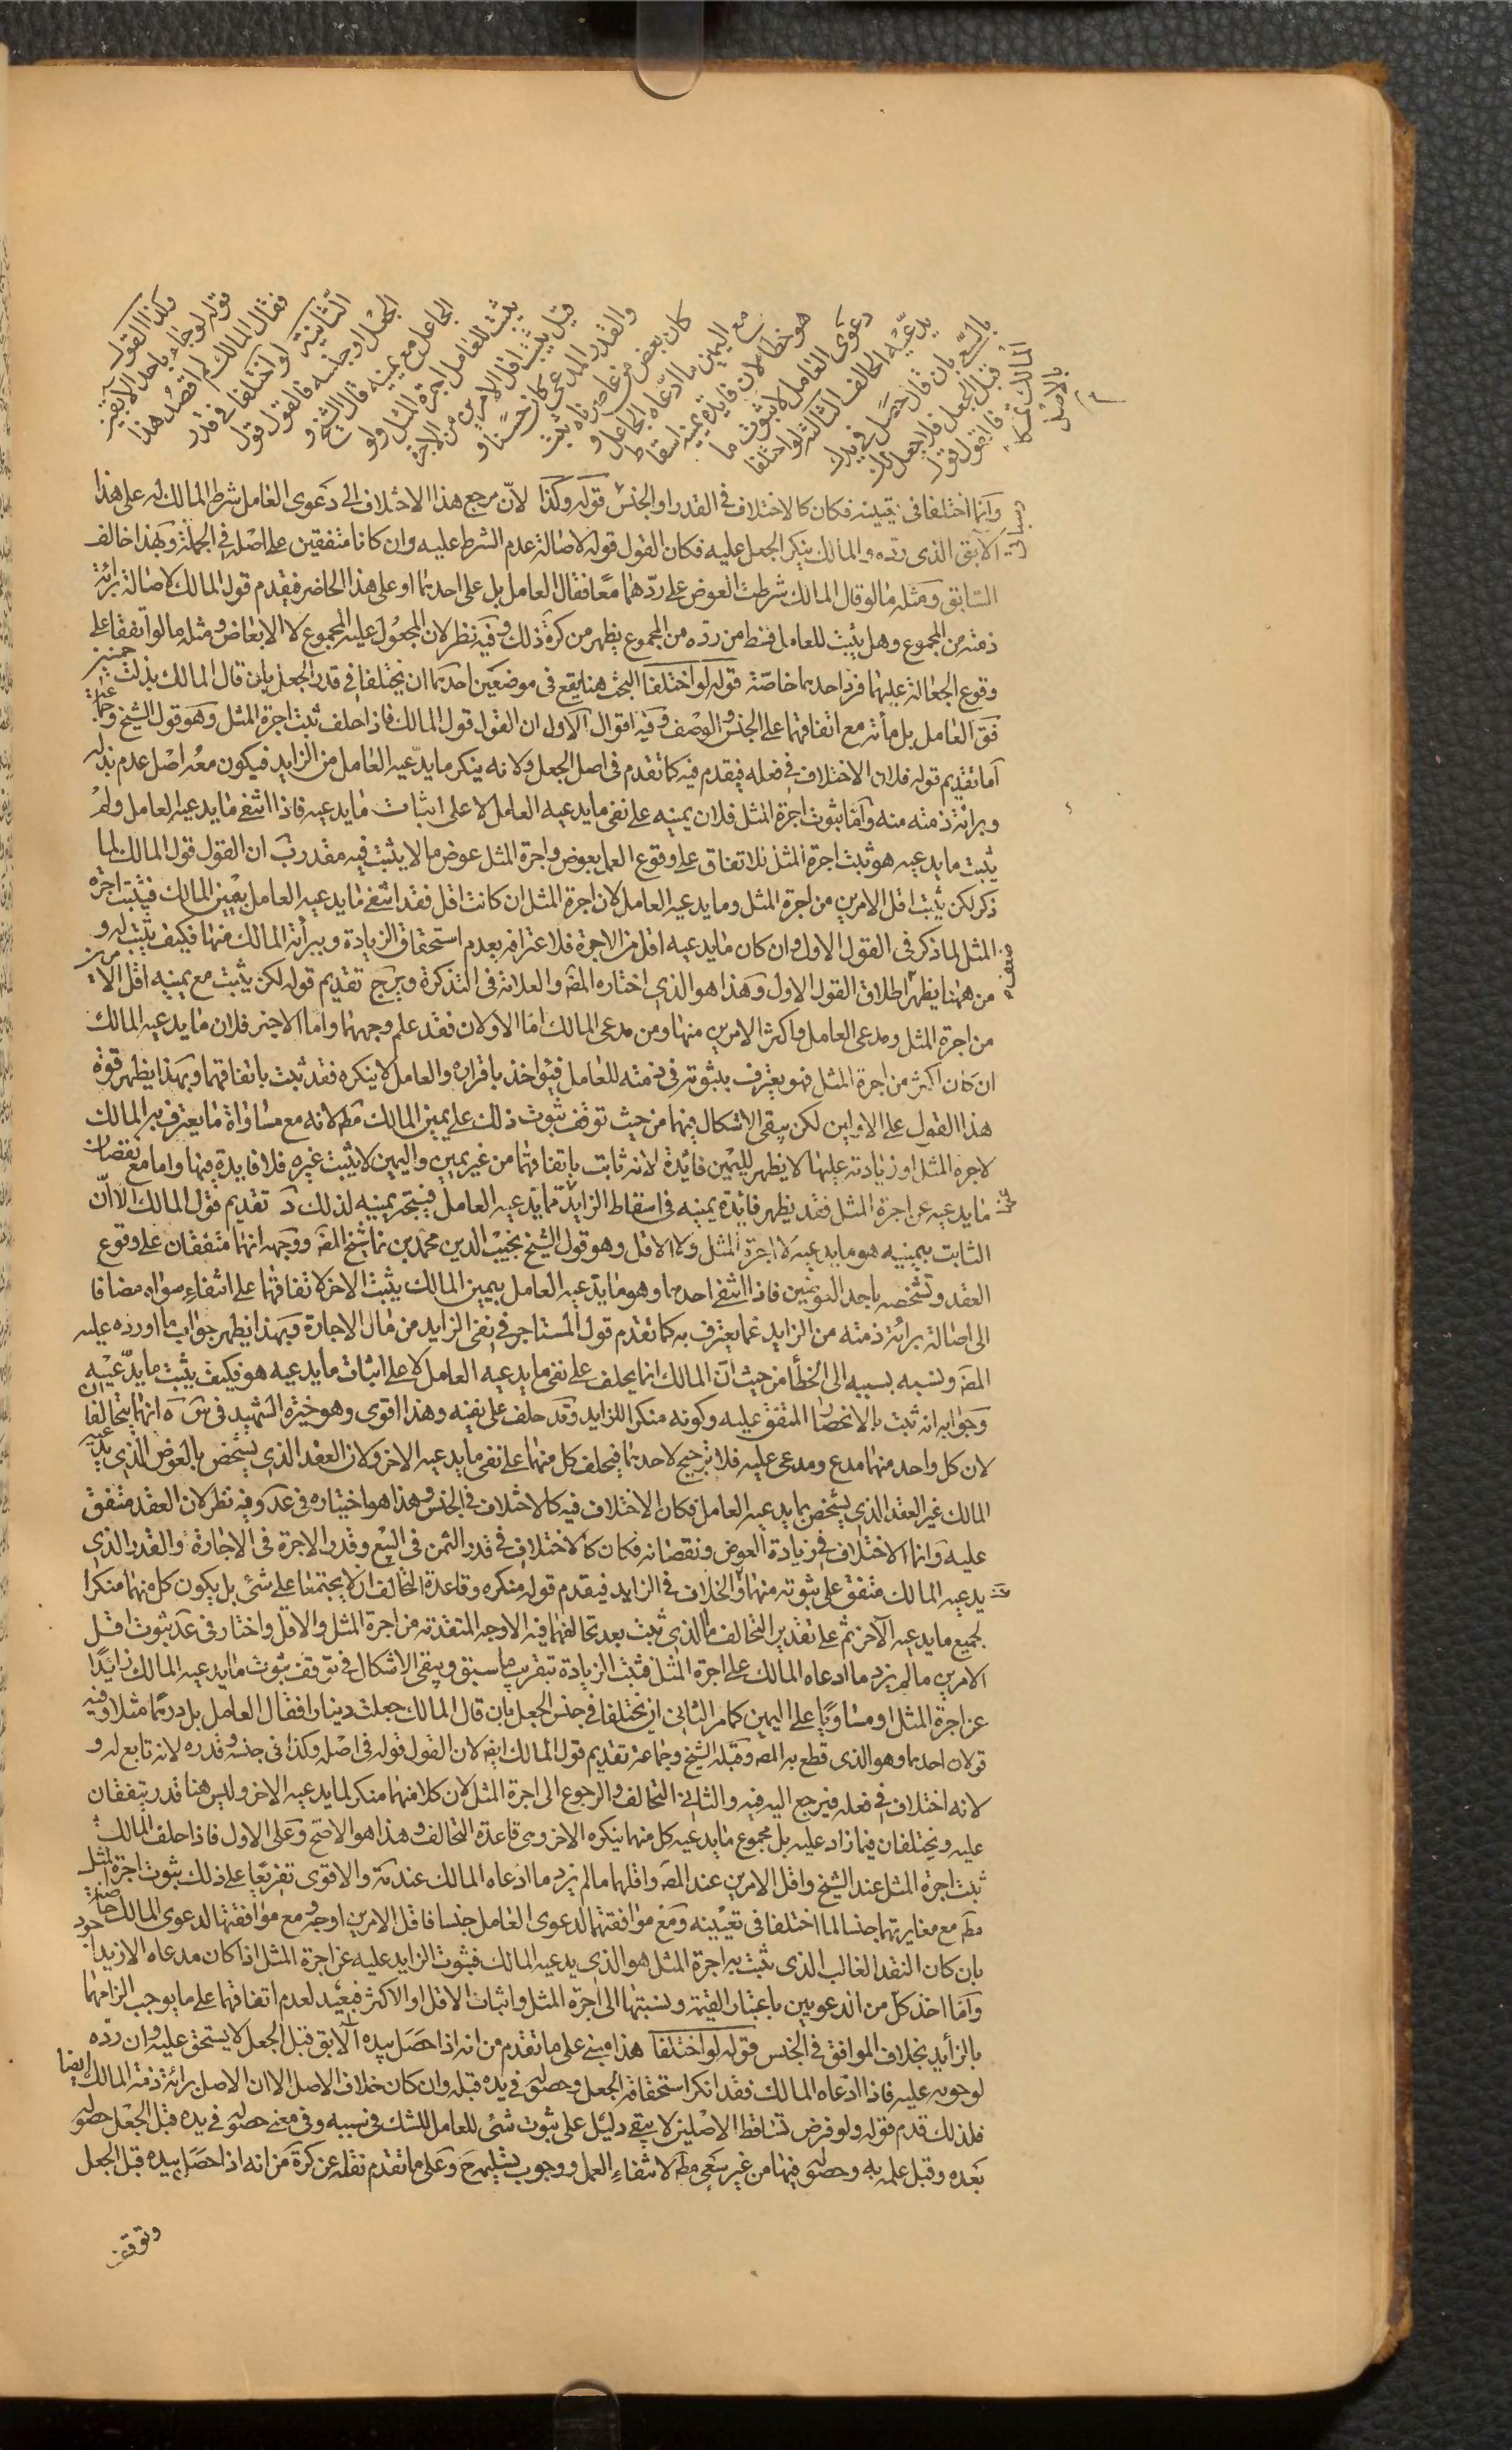 بالسعي بان قال حصل في يدك
قبل الجعل فلا جعل لك
فالقول قول
المالك تمسكا
بالاصل
يدعيه الخالف الثالثة لو اختلفا
دعوى العامل لا ثبوت ما
هو خطأ لان فايدة يمينه اسقاط
مع اليمين ما ادعاه الجاعل و
كان بعض من عاصرناه يثبت
والقدر المدعى كان حسنا و
قيل يثبت اقل الامرين من الاجرة
يثبت للعامل اجرة المثل ولو
الجاعل مع يمينه قال الشيخ و
الجعل او جنسه فالقول قول
الثانية لو اختلفا في قدر
فقال المالك لم اقصد هذا
قوله لو جاء باحد الآبقين
وكذا القول
وانما اختلفا في تعيينه فكان كالاختلاف في القدر او الجنس قوله وكذا لانّ مرجع هذا الاختلاف الى دعوى العامل شرط المالك له على هذا
الآبق الذى ردّه والمالك ينكر الجعل عليه فكان القول قوله لاصالة عدم الشرط عليه وان كانا متفقين على اصله في الجملة وبهذا خالف
السابق ومثله ما لو قال المالك شرطت العوض على ردّهما معًا فقال العامل بل على احدهما او على هذا الحاضر فيقدم قول المالك لاصالة برائة
ذمته من المجموع وهل يثبت للعامل قسط من ردّه من المجموع يظهر من كرة ذلك وفيه نظر لان المجعول عليه المجموع لا الابعاض ومثله ما لو اتفقا على
وقوع الجعالة عليهما فرد احدهما خاصّة قوله لو اختلفا البحث هنا يقع في موضعين احدهما ان يختلفا في قدر الجعل بان قال المالك بذلت خمسين
فق العامل بل مأئة مع اتفاقهما على الجنس والوصف وفيه اقوال الاول ان القول قول المالك فاذا حلف ثبت اجرة المثل وهو قول الشيخ وجماعة
اما تقديم قوله فلان الاختلاف في فعله فيقدم فيه كما تقدم في اصل الجعل ولانه ينكر ما يدّعيه العامل من الزايد فيكون معه اصل عدم بذله
وبرائة ذمته منه وامّا ثبوت اجرة المثل فلان يمينه على نفى ما يدعيه العامل لا على اثبات ما يدعيه فاذا انتفى ما يدعيه العامل ولم
يثبت ما يدعيه هو ثبت اجرة المثل للاتفاق على وقوع العمل بعوض واجرة المثل عوض ما لا يثبت فيه مقدر ب ان القول قول المالك لما
ذكر لكن يثبت اقل الامرين من اجرة المثل وما يدعيه العامل لان اجرة المثل ان كانت اقل فقد انتفى ما يدعيه العامل بيمين المالك فيثبت اجرة
المثل لما ذكر في القول الاول وان كان ما يدعيه اقل من الاجرة فلاعترافه بعدم استحقاق الزيادة وببرأئة المالك منها فكيف يثبت له و
من ههنا يظهر اطلاق القول الاول وهذا هو الذى اختاره المص والعلامة في التذكرة ويرجح تقديم قوله لكن يثبت مع يمينه اقل الامرين
من اجرة المثل ومدعى العامل واكثر الامرين منها ومن مدعى المالك اما الاولان فقد علم وجههما واما الاخير فلان ما يدعيه المالك
ان كان اكثر من اجرة المثل فهو يعترف بثبوته في ذمته للعامل فيؤاخذ باقراره والعامل لا ينكره فقد ثبت باتفاقهما وبهذا يظهر قوة
هذا القول على الاولين لكن يبقى الاشكال فيهما من حيث توقف ثبوت ذلك على يمين المالك مط لانه مع مساواة ما يعترف به المالك
لاجرة المثل او زيادته عليها لا يظهر لليمين فائدة لانه ثابت باتفاقهما من غير يمين واليمين لا يثبت غيره فلا فايدة فيها واما مع نقصان
ما يدعيه عن اجرة المثل فقد يظهر فائدة يمينه في اسقاط الزايد ممّا يدّعيه العامل فيتجه يمينه لذلك د تقديم قول المالك الا انّ
الثابت بيمينه هو ما يدعيه لا اجرة المثل ولا الاقل وهو قول الشيخ نجيب الدين محمد بن نما شيخ المص ووجهه انهما متفقان على وقوع
العقد وتشخصه باحد العوضين فاذا انتفى احدهما وهو ما يدّعيه العامل بيمين المالك يثبت الاخر لاتفاقهما على انتفاء سواه مضافا
الى اصالة برائة ذمته من الزايد عما يعترف به كما تقدم قول المستاجر في نفى الزايد من مال الاجارة وبهذا يظهر جواب ما اورده عليه
المص ونسبه بسببه الى الخطأ من حيث انّ المالك انما يحلف على نفى ما يدعيه العامل لا على اثبات ما يدعيه هو فكيف يثبت ما يدّعيه
وجوابه انه ثبت بالانحصار المتفق عليه وكونه منكرا للزايد وقد حلف على نفيه وهذا اقوى وهو خيرة الشهيد في ش ه انهما يتحالفان
لان كل واحد منهما مدع ومدعى عليه فلا ترجيح لاحدهما فيحلف كل منهما على نفى ما يدعيه الاخر ولان العقد الذى يشخص بالعوض الذى يدّعيه
المالك غير العقد الذى يشخص بما يدعيه العامل فكان الاختلاف فيه كالاختلاف في الجنس وهذا هو اختياره في عد وفيه نظر لان العقد متفق
عليه وانما الاختلاف في زيادة العوض ونقصانه فكان كالاختلاف في قدر الثمن في البيع وقدر الاجرة في الاجارة والقدر الذى
يدعيه المالك متفق على ثبوته منهما والخلاف في الزايد فيقدم قول منكره وقاعدة التحالف ان لا يجتمعا على شئ بل يكون كل منهما منكرا
لجميع ما يدعيه الآخر ثم على تقدير التحالف فالذى يثبت بعد تحالفهما فيه الاوجه المتقدمة من اجرة المثل والاقل واختار في عد ثبوت اقل
الامرين ما لم يزد ما ادعاه المالك على اجرة المثل فتثبت الزيادة بتقريب ما سبق ويبقى الاشكال في توقف ثبوت ما يدعيه المالك زائدًا
عن اجرة المثل او مساويًا على اليمين كما مر الثانى ان يختلفا في جنس الجعل بان قال المالك جعلت دينارا فقال العامل بل درهما مثلا وفيه
قولان احدهما وهو الذى قطع به المص وقبله الشيخ وجماعة تقديم قول المالك ايض لان القول قوله في اصله وكذا في جنسه وقدره لانه تابع له و
لانه اختلاف في فعله فيرجع اليه فيه والثانى التحالف والرجوع الى اجرة المثل لان كلا منهما منكر لما يدعيه الاخر وليس هنا قدر يتفقان
عليه ويختلفان فيما زاد عليه بل مجموع ما يدعيه كل منهما ينكره الاخر وهى قاعدة التحالف وهذا هو الاصح وعلى الاول فاذا حلف المالك
ثبت اجرة المثل عند الشيخ واقل الامرين عند المص واقلهما ما لم يزد ما ادعاه المالك عند مة والاقوى تفريعًا على ذلك ثبوت اجرة المثل
مط مع مغايرتهما جنسا لما اختلفا في تعيينه ومع موافقتها لدعوى العامل جنسا فاقل الامرين اوجه ومع موافقتها لدعوى المالك خاصة
بان كان النقد الغالب الذى يثبت به اجرة المثل هو الذى يدعيه المالك فثبوت الزايد عليه عن اجرة المثل اذا كان مدعاه الازيد اجود
وامّا اخذ كلّ من الدعويين باعتبار القيمة ونسبتها الى اجرة المثل واثبات الاقل او الاكثر فبعيد لعدم اتفاقهما على ما يوجب الزامهما
بالزايد بخلاف الموافق في الجنس قوله لو اختلفا هذا مبنى على ما تقدم من انه اذا حصل بيده الآبق قبل الجعل لا يستحق عليه وان ردّه
لوجوبه عليه فاذا ادّعاه المالك فقد انكر استحقاقه الجعل وحصوله في يده قبله وان كان خلاف الاصل الا ان الاصل برائة ذمة المالك ايضا
فلذلك قدم قوله ولو فرض تساقط الاصلين لا يبقى دليل على ثبوت شئ للعامل للشك في سببه وفى معنى حصوله في يده قبل الجعل حصوله
بعده وقبل علمه به وحصوله فيهما من غير سعى مط لانتفاء العمل ووجوب تسليمه ح وعلى ما تقدم نقله عن كرة من انه اذا حصل بيده قبل الجعل
وتوقف